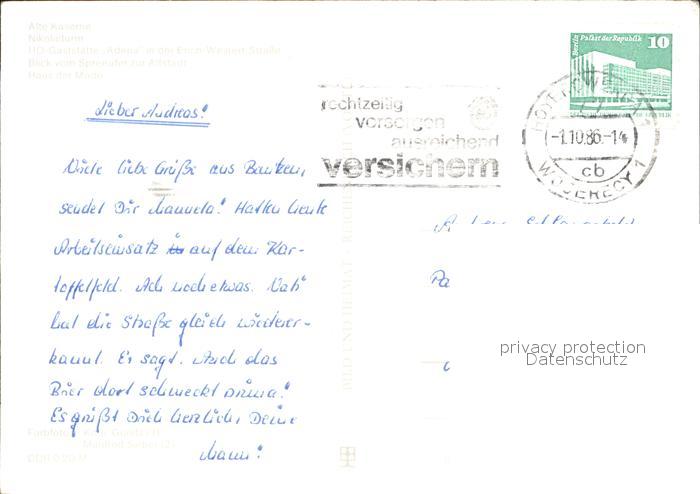 Alte Kaserne
Nikolaiturm
HO-Gaststätte „Adena" in der Erich-Weinert-Straße
Blick vom Spreeufer zur Altstadt
Haus der Mode
Lieber Andreas!
Viele liebe Grüße aus Bautzen,
sendet Dir Manuela! Hatten heute
Arbeitseinsatz auf dem Kar-
toffelfeld. Ach noch etwas. Vati
hat die Straße gleich wiederer-
kannt. Er sagt. Auch das
Bier dort schmeckt prima!
Es grüßt Dich herzlich, Deine
Manu!
Farbfotos:
Manfred (2)
DDR 0,20 M
BILD UND HEIMAT
rechtzeitig
vorsorgen
ausreichend
versichern
HOYERSWERDA 1
-1.10.86.-14
cb
WOJERECY 1
Berlin Palast der Republik 10
Pa
privacy protection
Datenschutz